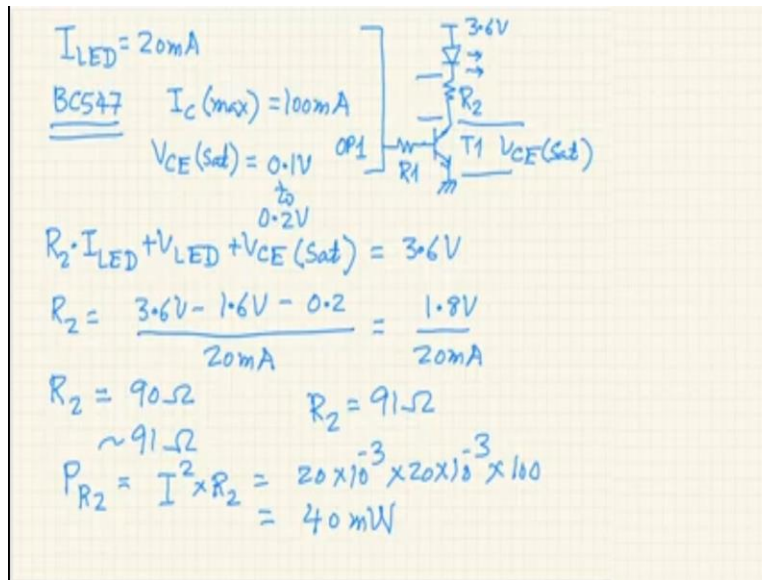 I_LED = 20mA
3.6V
BC547 I_C (max) = 100mA
R2
V_CE (Sat) = 0.1V
to
0.2V
OP1
R1
T1 V_CE(Sat)
R₂·I_LED + V_LED + V_CE (Sat) = 3.6V
R₂ = 3.6V - 1.6V - 0.2 / 20mA = 1.8V / 20mA
R₂ = 90Ω R₂ = 91Ω
~91Ω
P_R2 = I² × R₂ = 20×10⁻³ × 20×10⁻³ × 100
= 40mW